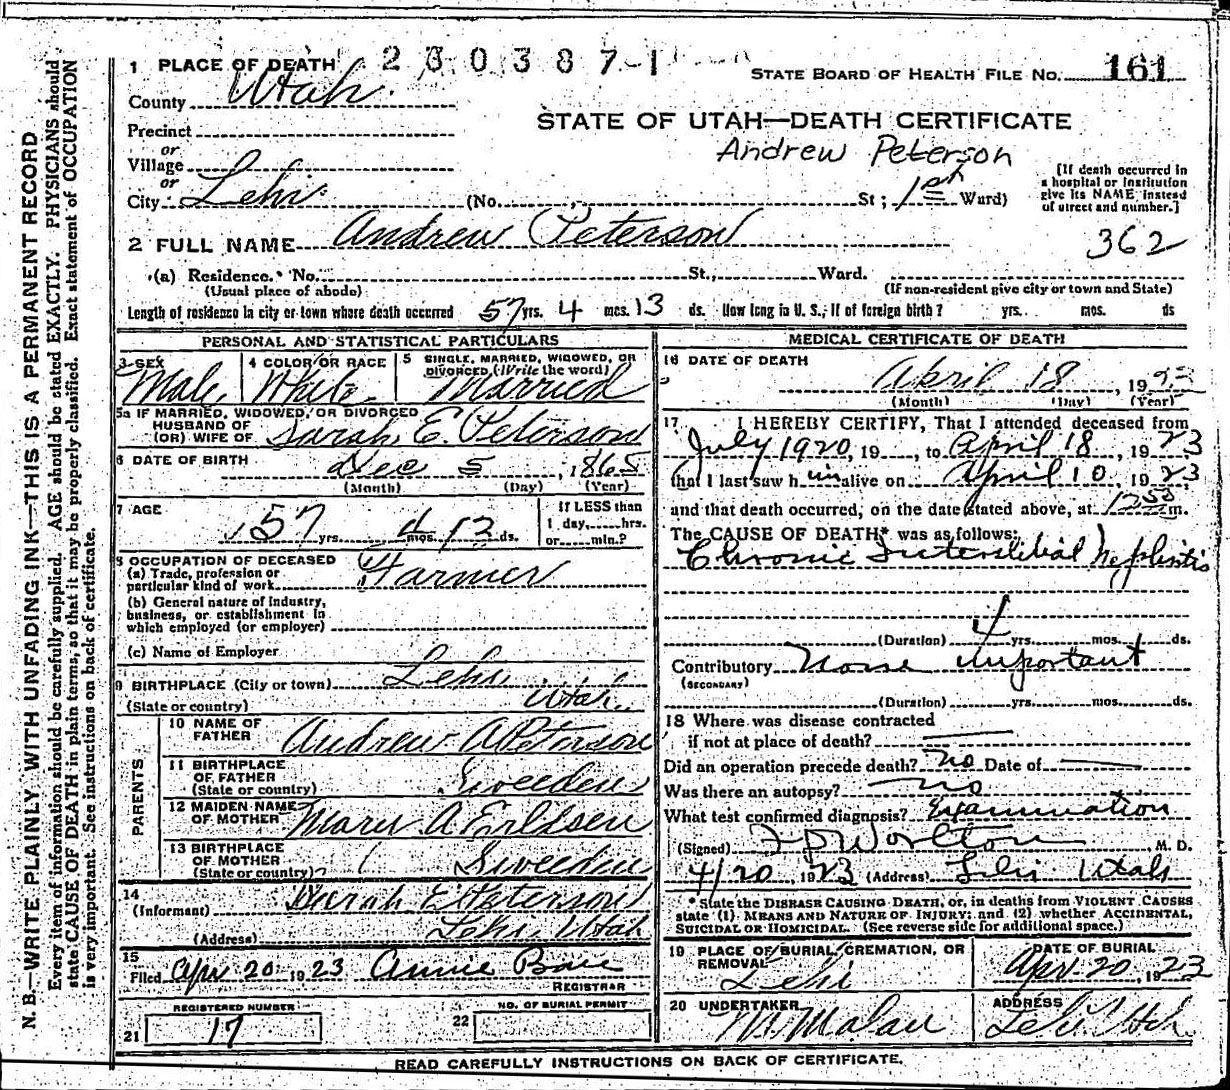 1 PLACE OF DEATH 2 3 0 3 8 7 - 1
STATE BOARD OF HEALTH FILE NO. 161
County Utah.
STATE OF UTAH—DEATH CERTIFICATE
Andrew Peterson
Precinct
or
Village
or
City Lehi (No. St; 1st Ward)
[If death occurred in
a hospital or institution
give its NAME instead
of street and number.]
2 FULL NAME Andrew Peterson
362
(a) Residence. No. St., Ward.
(Usual place of abode) (If non-resident give city or town and State)
Length of residence in city or town where death occurred 57 yrs. 4 mos. 13 ds. How long in U. S., if of foreign birth? yrs. mos. ds
PERSONAL AND STATISTICAL PARTICULARS
3 SEX
Male
4 COLOR OR RACE
White
5 SINGLE, MARRIED, WIDOWED, OR
DIVORCED, (Write the word)
Married
5a IF MARRIED, WIDOWED, OR DIVORCED
HUSBAND OF
(OR) WIFE OF Sarah E. Peterson
6 DATE OF BIRTH Dec 5, 1865
(Month) (Day) (Year)
7 AGE
57 yrs. 4 mos. 13 ds.
If LESS than
1 day, hrs.
or min.?
8 OCCUPATION OF DECEASED
(a) Trade, profession or
particular kind of work Farmer
(b) General nature of industry,
business, or establishment in
which employed (or employer)
(c) Name of Employer
9 BIRTHPLACE (City or town) Lehi
(State or country) Utah.
PARENTS
10 NAME OF
FATHER Andrew A Peterson
11 BIRTHPLACE
OF FATHER
(State or country) Sweeden
12 MAIDEN NAME
OF MOTHER Mary A
13 BIRTHPLACE
OF MOTHER
(State or country) Sweeden
14
(Informant) Sarah E Peterson
(Address) Lehi, Utah
15
Filed Apr 20 1923 Annie
REGISTRAR
REGISTERED NUMBER
21 17
NO. OF BURIAL PERMIT
22
MEDICAL CERTIFICATE OF DEATH
16 DATE OF DEATH
April 18, 1923
(Month) (Day) (Year)
17 I HEREBY CERTIFY, That I attended deceased from
July 1920, 19 , to April 18, 1923
that I last saw h im alive on April 10, 1923
and that death occurred, on the date stated above, at m.
The CAUSE OF DEATH* was as follows:
Chronic Interstitial Nephritis
(Duration) 4 yrs. mos. ds.
Contributory None important
(SECONDARY)
(Duration) yrs. mos. ds.
18 Where was disease contracted
if not at place of death?
Did an operation precede death? no Date of
Was there an autopsy? no
What test confirmed diagnosis? Examination
(Signed) F D Worlton M. D.
4/20, 1923 (Address) Lehi Utah
* State the DISEASE CAUSING DEATH, or, in deaths from VIOLENT CAUSES
state (1) MEANS AND NATURE OF INJURY; and (2) whether ACCIDENTAL,
SUICIDAL OR HOMICIDAL. (See reverse side for additional space.)
19 PLACE OF BURIAL, CREMATION, OR
REMOVAL
Lehi
DATE OF BURIAL
Apr 20, 1923
20 UNDERTAKER
ADDRESS
Lehi Utah
READ CAREFULLY INSTRUCTIONS ON BACK OF CERTIFICATE.
N. B.—WRITE PLAINLY, WITH UNFADING INK—THIS IS A PERMANENT RECORD
Every item of information should be carefully supplied. AGE should be stated EXACTLY. PHYSICIANS should
state CAUSE OF DEATH in plain terms, so that it may be properly classified. Exact statement of OCCUPATION
is very important. See instructions on back of certificate.